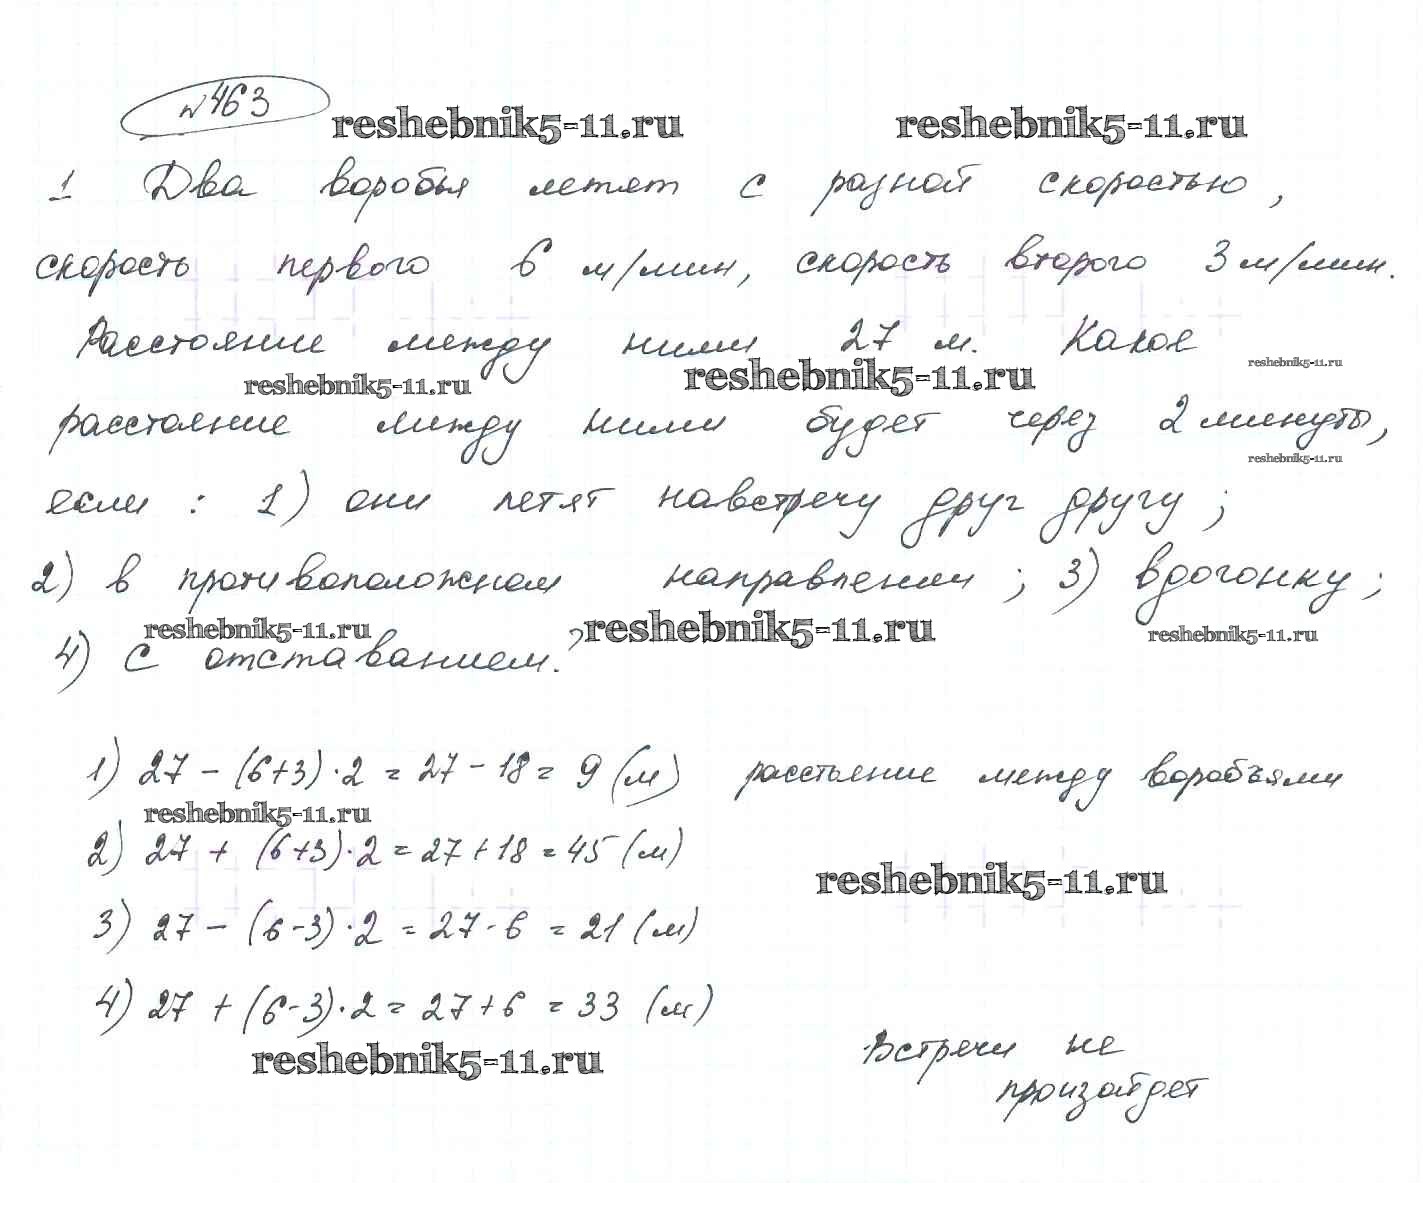 №463
reshebnik5-11.ru reshebnik5-11.ru
1 Два воробья летят с разной скоростью,
скорость первого 6 м/мин, скорость второго 3 м/мин.
Расстояние между ними 27 м. Какое
reshebnik5-11.ru reshebnik5-11.ru reshebnik5-11.ru
расстояние между ними будет через 2 минуты,
reshebnik5-11.ru
если : 1) они летят навстречу друг другу ;
2) в противоположном направлении ; 3) вдогонку ;
reshebnik5-11.ru reshebnik5-11.ru reshebnik5-11.ru
4) с отставанием.?
1) 27 - (6+3) · 2 = 27 - 18 = 9 (м) расстояние между воробъями
reshebnik5-11.ru
2) 27 + (6+3) · 2 = 27 + 18 = 45 (м)
reshebnik5-11.ru
3) 27 - (6-3) · 2 = 27 - 6 = 21 (м)
4) 27 + (6-3) · 2 = 27 + 6 = 33 (м)
reshebnik5-11.ru
Встречи не
произойдет